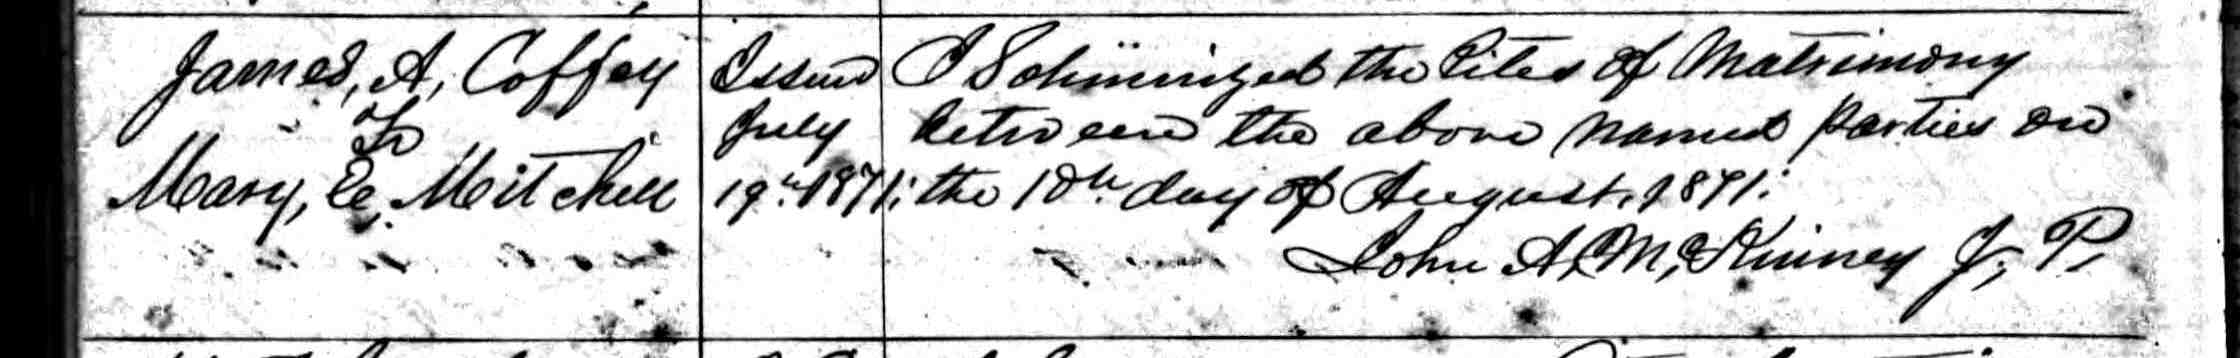 James, A, Coffey
To
Mary, E, Mitchell
Issued
July
19th 1871;
I Solimnized the Rites of Matrimony
between the above named parties on
the 10th day of August, 1871;
John A, McKinney J, P,